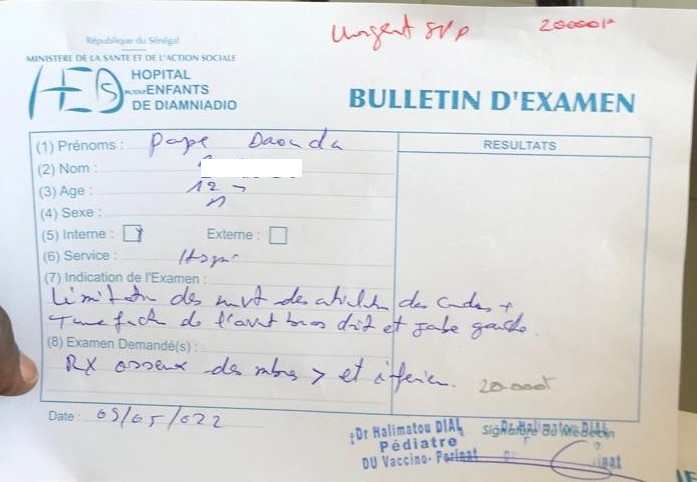 Urgent SVP 20000F
République du Sénégal
MINISTERE DE LA SANTE ET DE L'ACTION SOCIALE
HOPITAL
POUR ENFANTS
DE DIAMNIADIO
BULLETIN D'EXAMEN
(1) Prénoms : Pape Daouda
RESULTATS
(2) Nom :
(3) Age : 12
(4) Sexe : M
(5) Interne : Externe :
(6) Service :
(7) Indication de l'Examen :
Limitation des mvt des des coudes +
de l'avant bras droit et jambe gauche.
(8) Examen Demandé(s) :
RX osseux des mbres > et inferieur. 20000F
Date : 09/05/022
Dr Halimatou DIAL
Signature du Médecin
Pédiatre
DU Vaccino- Périnat